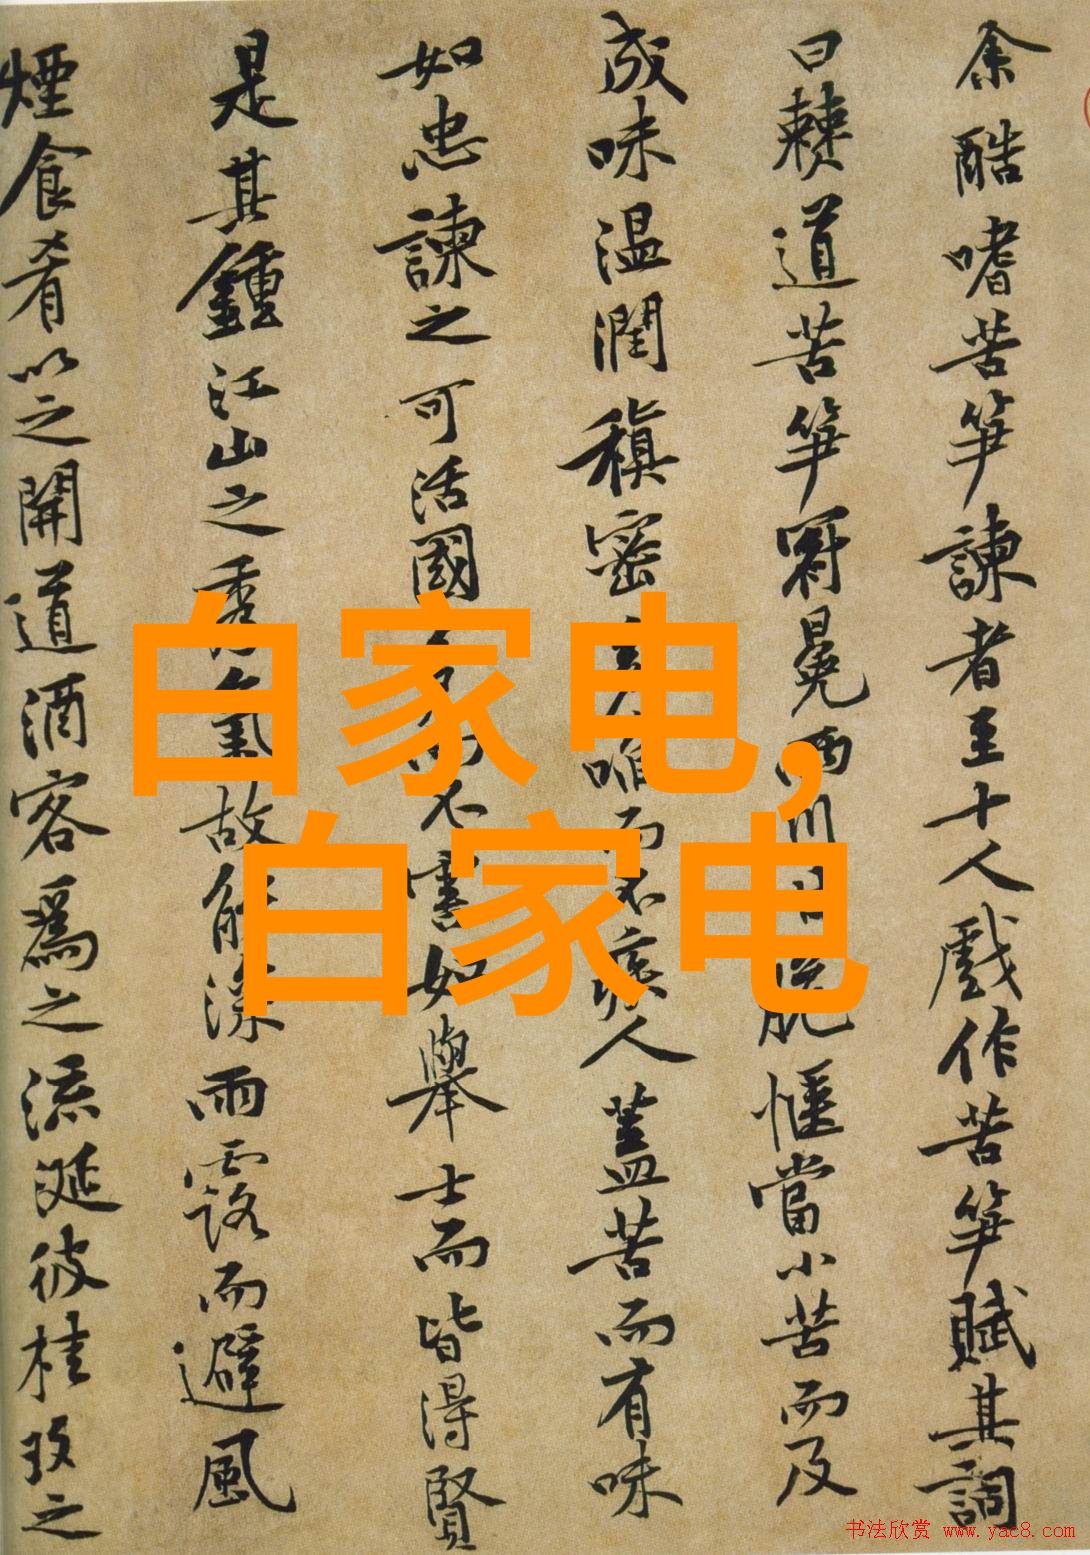 余酷嗜苦笋諫者至十人戲作苦笋賦其詞
曰僰道苦笋冠冕兩川甘脆愜當小苦而及
成味温潤稹密多啗而不疾人蓋苦而有味
如忠諫之可活國多而不害如舉士而皆得賢
是其鍾江山之秀氣故能深雨露而避風
煙食肴以之開道酒客爲之流涎彼桂玫之
白家电,
白家电
书法欣赏 www.yac8.com